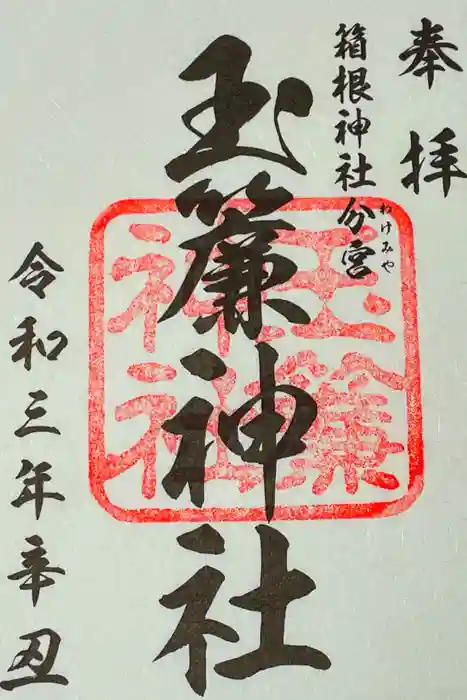 奉拝
箱根神社分宮
わけみや
玉簾神社
玉簾神社
令和三年辛丑